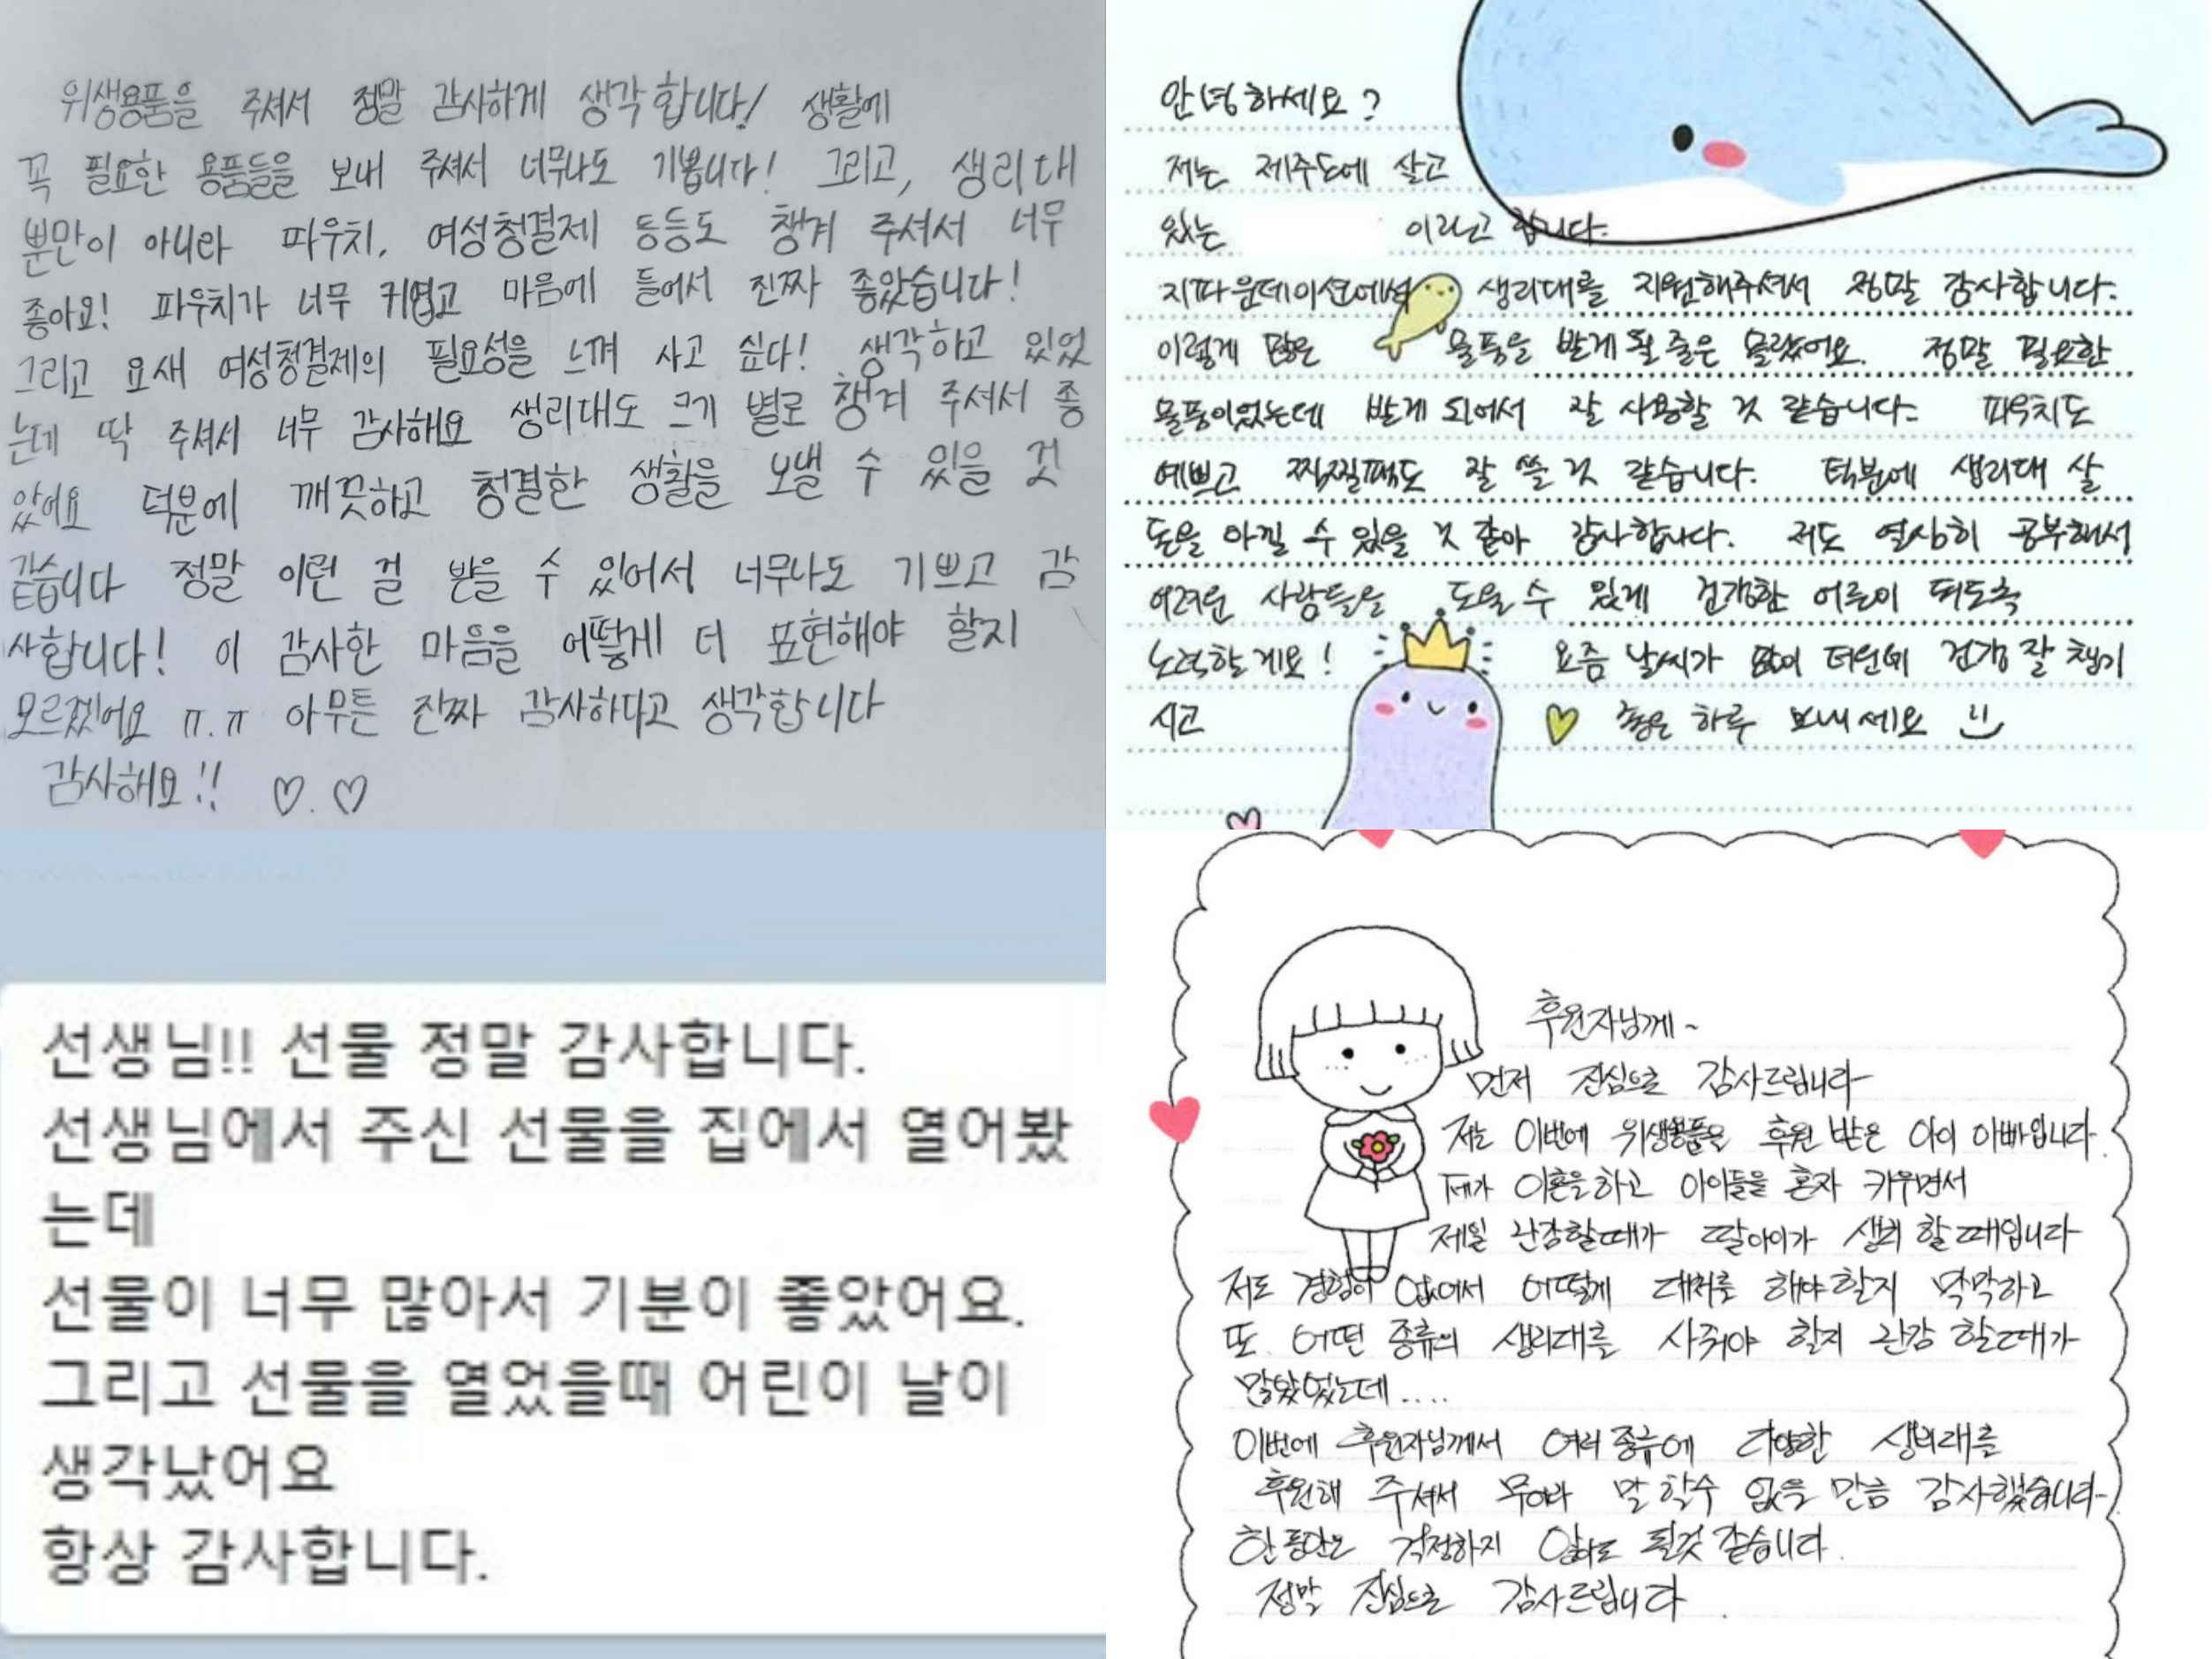 위생용품을 주셔서 정말 감사하게 생각합니다! 생활에
꼭 필요한 용품들을 보내 주셔서 너무나도 기쁩니다! 그리고, 생리대
뿐만이 아니라 파우치, 여성청결제 등등도 챙겨 주셔서 너무
좋아요! 파우치가 너무 귀엽고 마음에 들어서 진짜 좋았습니다!
그리고 요새 여성청결제의 필요성을 느껴 사고 싶다! 생각하고 있었
는데 딱 주셔서 너무 감사해요 생리대도 크기 별로 챙겨 주셔서 좋
았어요 덕분에 깨끗하고 청결한 생활을 보낼 수 있을 것
같습니다 정말 이런 걸 받을 수 있어서 너무나도 기쁘고 감
사합니다! 이 감사한 마음을 어떻게 더 표현해야 할지
모르겠어요 ㅠ.ㅠ 아무튼 진짜 감사하다고 생각합니다
감사해요!! ♡.♡
안녕하세요?
저는 제주도에 살고
있는 이라고 합니다.
지파운데이션에서 생리대를 지원해주셔서 정말 감사합니다.
이렇게 많은 물품을 받게 될 줄은 몰랐어요. 정말 필요한
물품이었는데 받게 되어서 잘 사용할 것 같습니다. 파우치도
예쁘고 찜질팩도 잘 쓸 것 같습니다. 덕분에 생리대 살
돈을 아낄 수 있을 것 같아 감사합니다. 저도 열심히 공부해서
어려운 사람들을 도울 수 있게 건강한 어른이 되도록
노력할게요! 요즘 날씨가 많이 더운데 건강 잘 챙기
시고 좋은 하루 보내세요
선생님!! 선물 정말 감사합니다.
선생님에서 주신 선물을 집에서 열어봤
는데
선물이 너무 많아서 기분이 좋았어요.
그리고 선물을 열었을때 어린이 날이
생각났어요
항상 감사합니다.
후원자님께~
먼저 진심으로 감사드립니다
저는 이번에 위생용품을 후원 받은 아이 아빠입니다.
제가 이혼을하고 아이들을 혼자 키우면서
제일 난감할때가 딸아이가 생리 할때입니다
저도 경험이 없어서 어떻게 대처를 해야할지 막막하고
또 어떤 종류의 생리대를 사줘야 할지 난감 할때가
많았었는데....
이번에 후원자님께서 여러종류에 다양한 생리대를
후원해 주셔서 무어라 말 할수 없을 만큼 감사했습니다
한동안은 걱정하지 않아도 될것 같습니다.
정말 진심으로 감사드립니다.